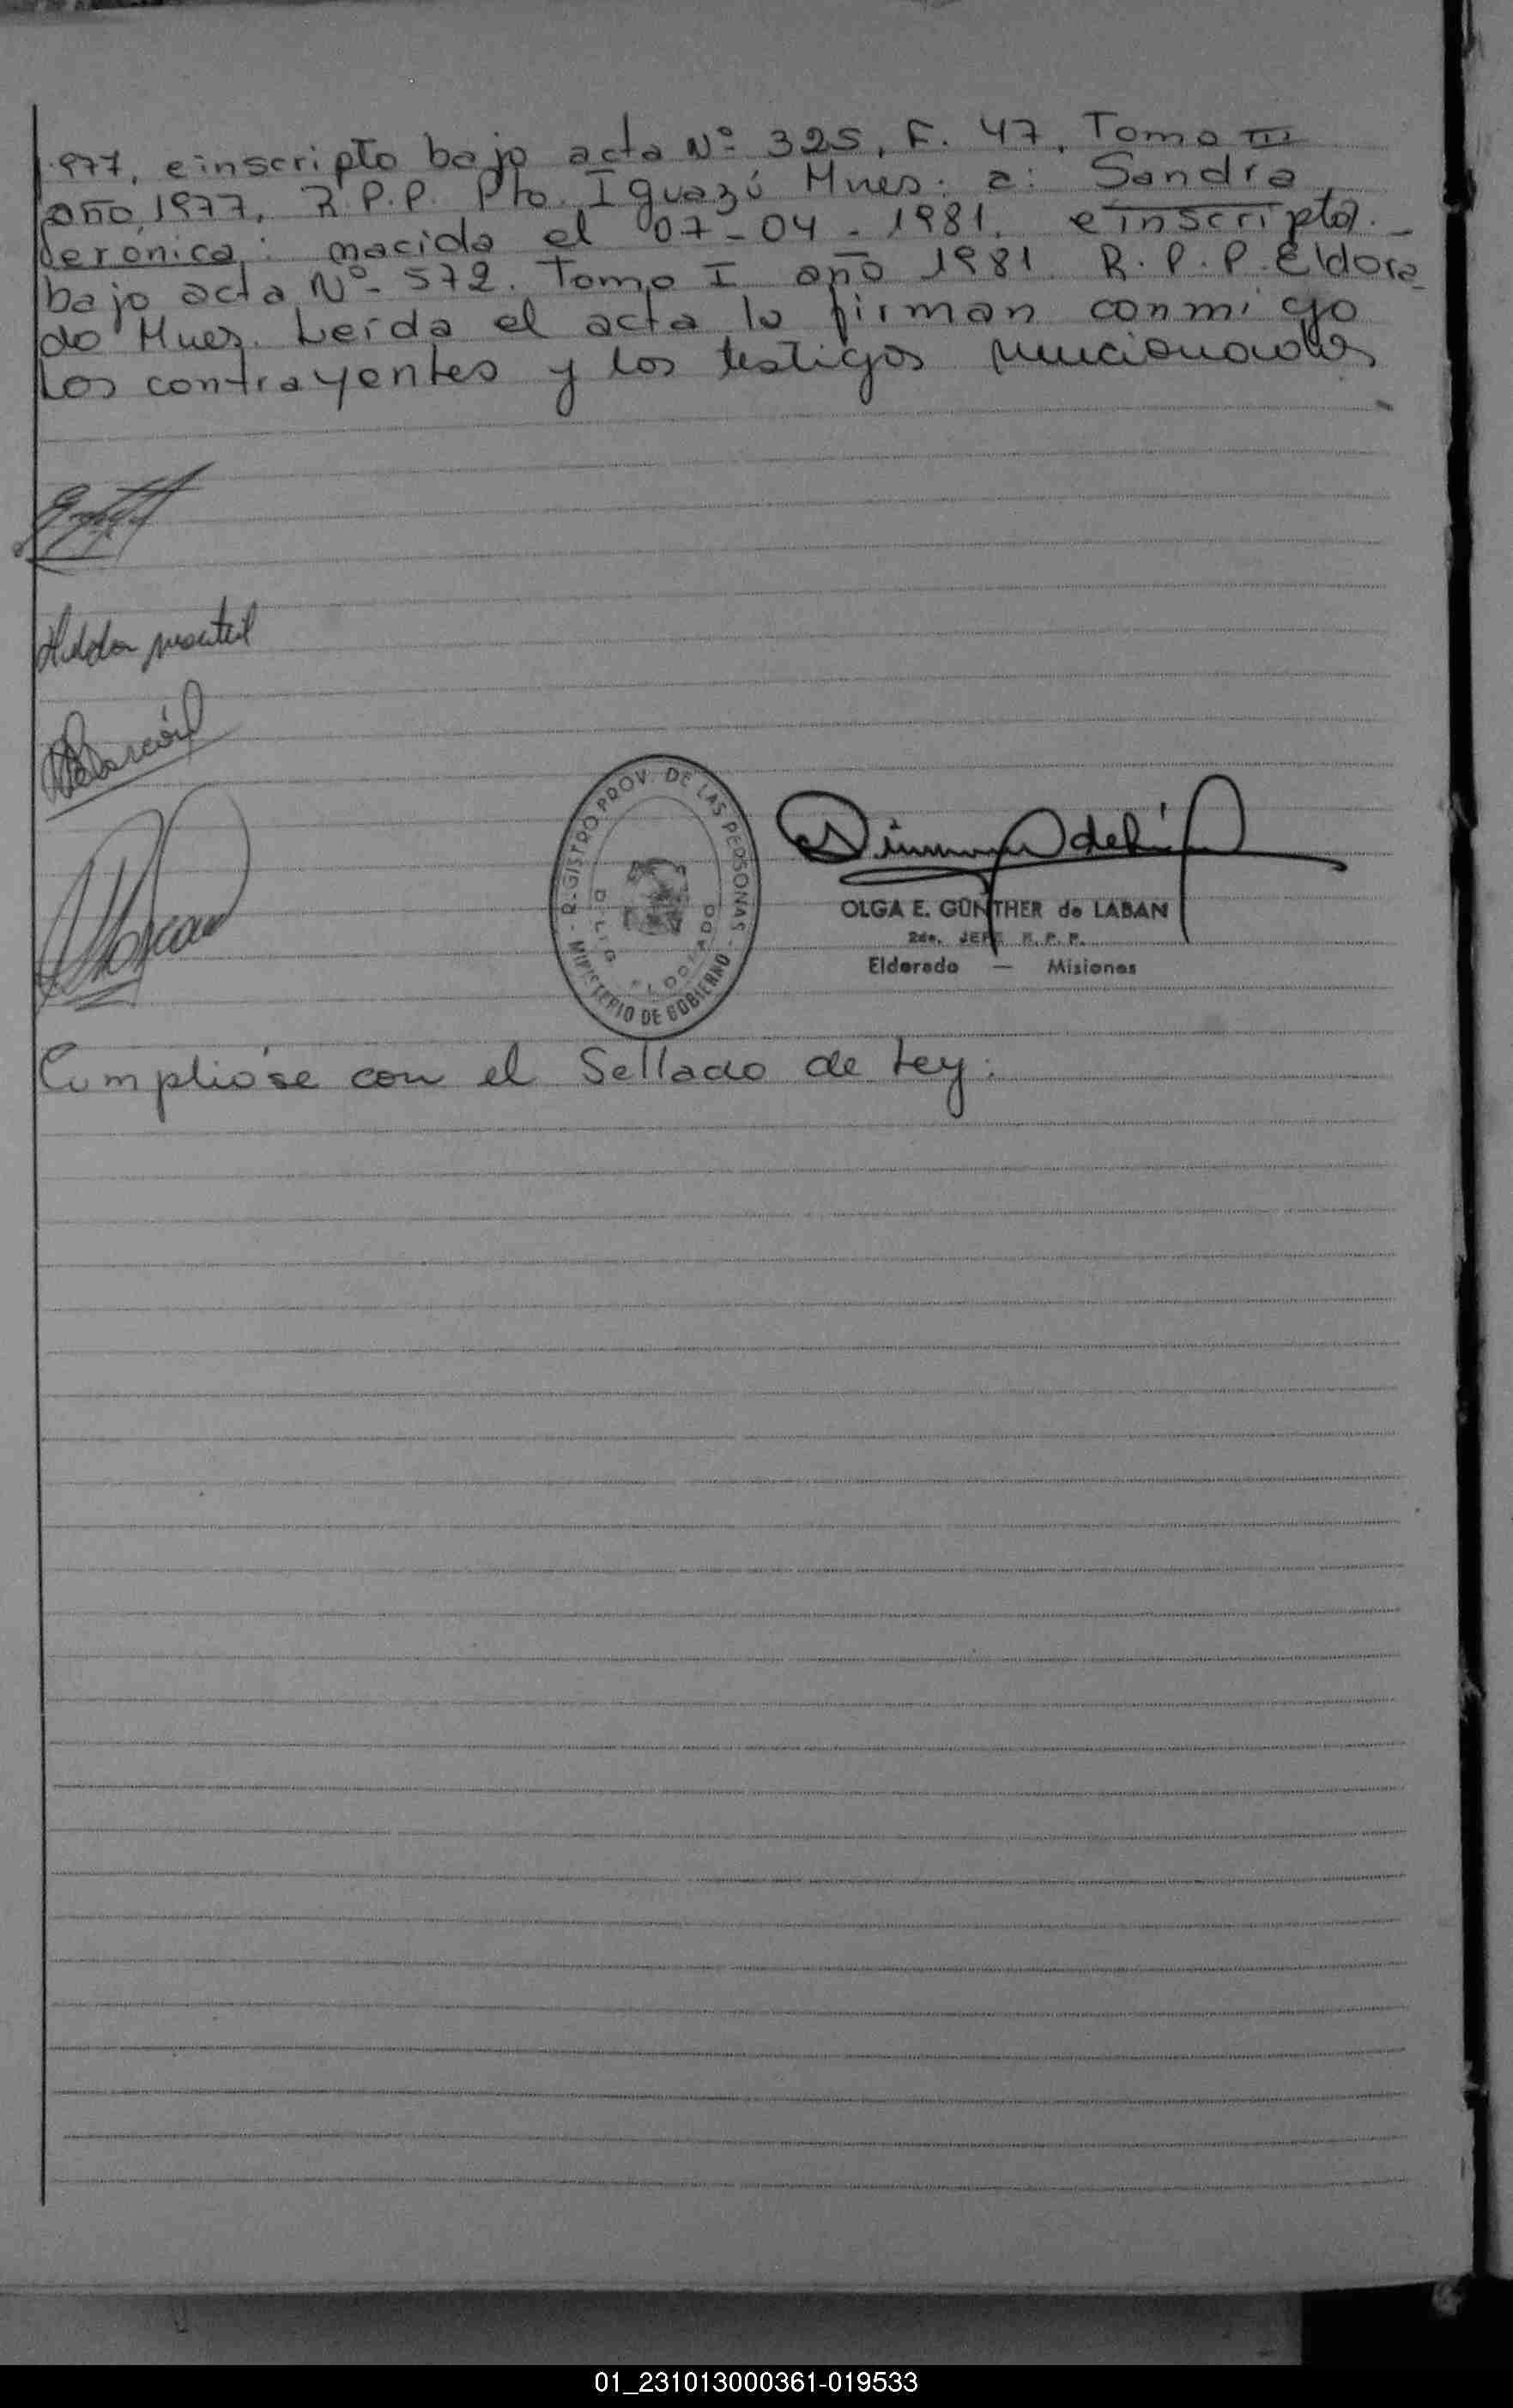 1.977, e inscripto bajo acta Nº 325, F. 47, Tomo III
año 1977, R.P.P. Pto. Iguazú Mnes: a: Sandra
Verónica: nacida el 07-04-1981. e inscripta.
bajo acta Nº 572. Tomo I año 1981 R.P.P. Eldora
do Mnes. Leída el acta lo firman conmigo
los contrayentes y los testigos mencionados
Hilda
Alarcón
REGISTRO PROV. DE LAS PERSONAS
MINISTERIO DE GOBIERNO
OLGA E. GÜNTHER de LABAN
2da. JEFE R.P.P.
Eldorado — Misiones
Cumplióse con el Sellado de Ley.
01_231013000361-019533